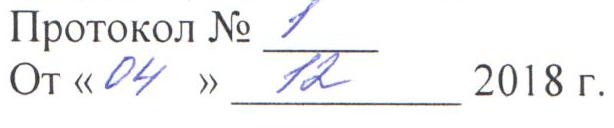 Протокол № 1
От « 04 » 12 2018 г.